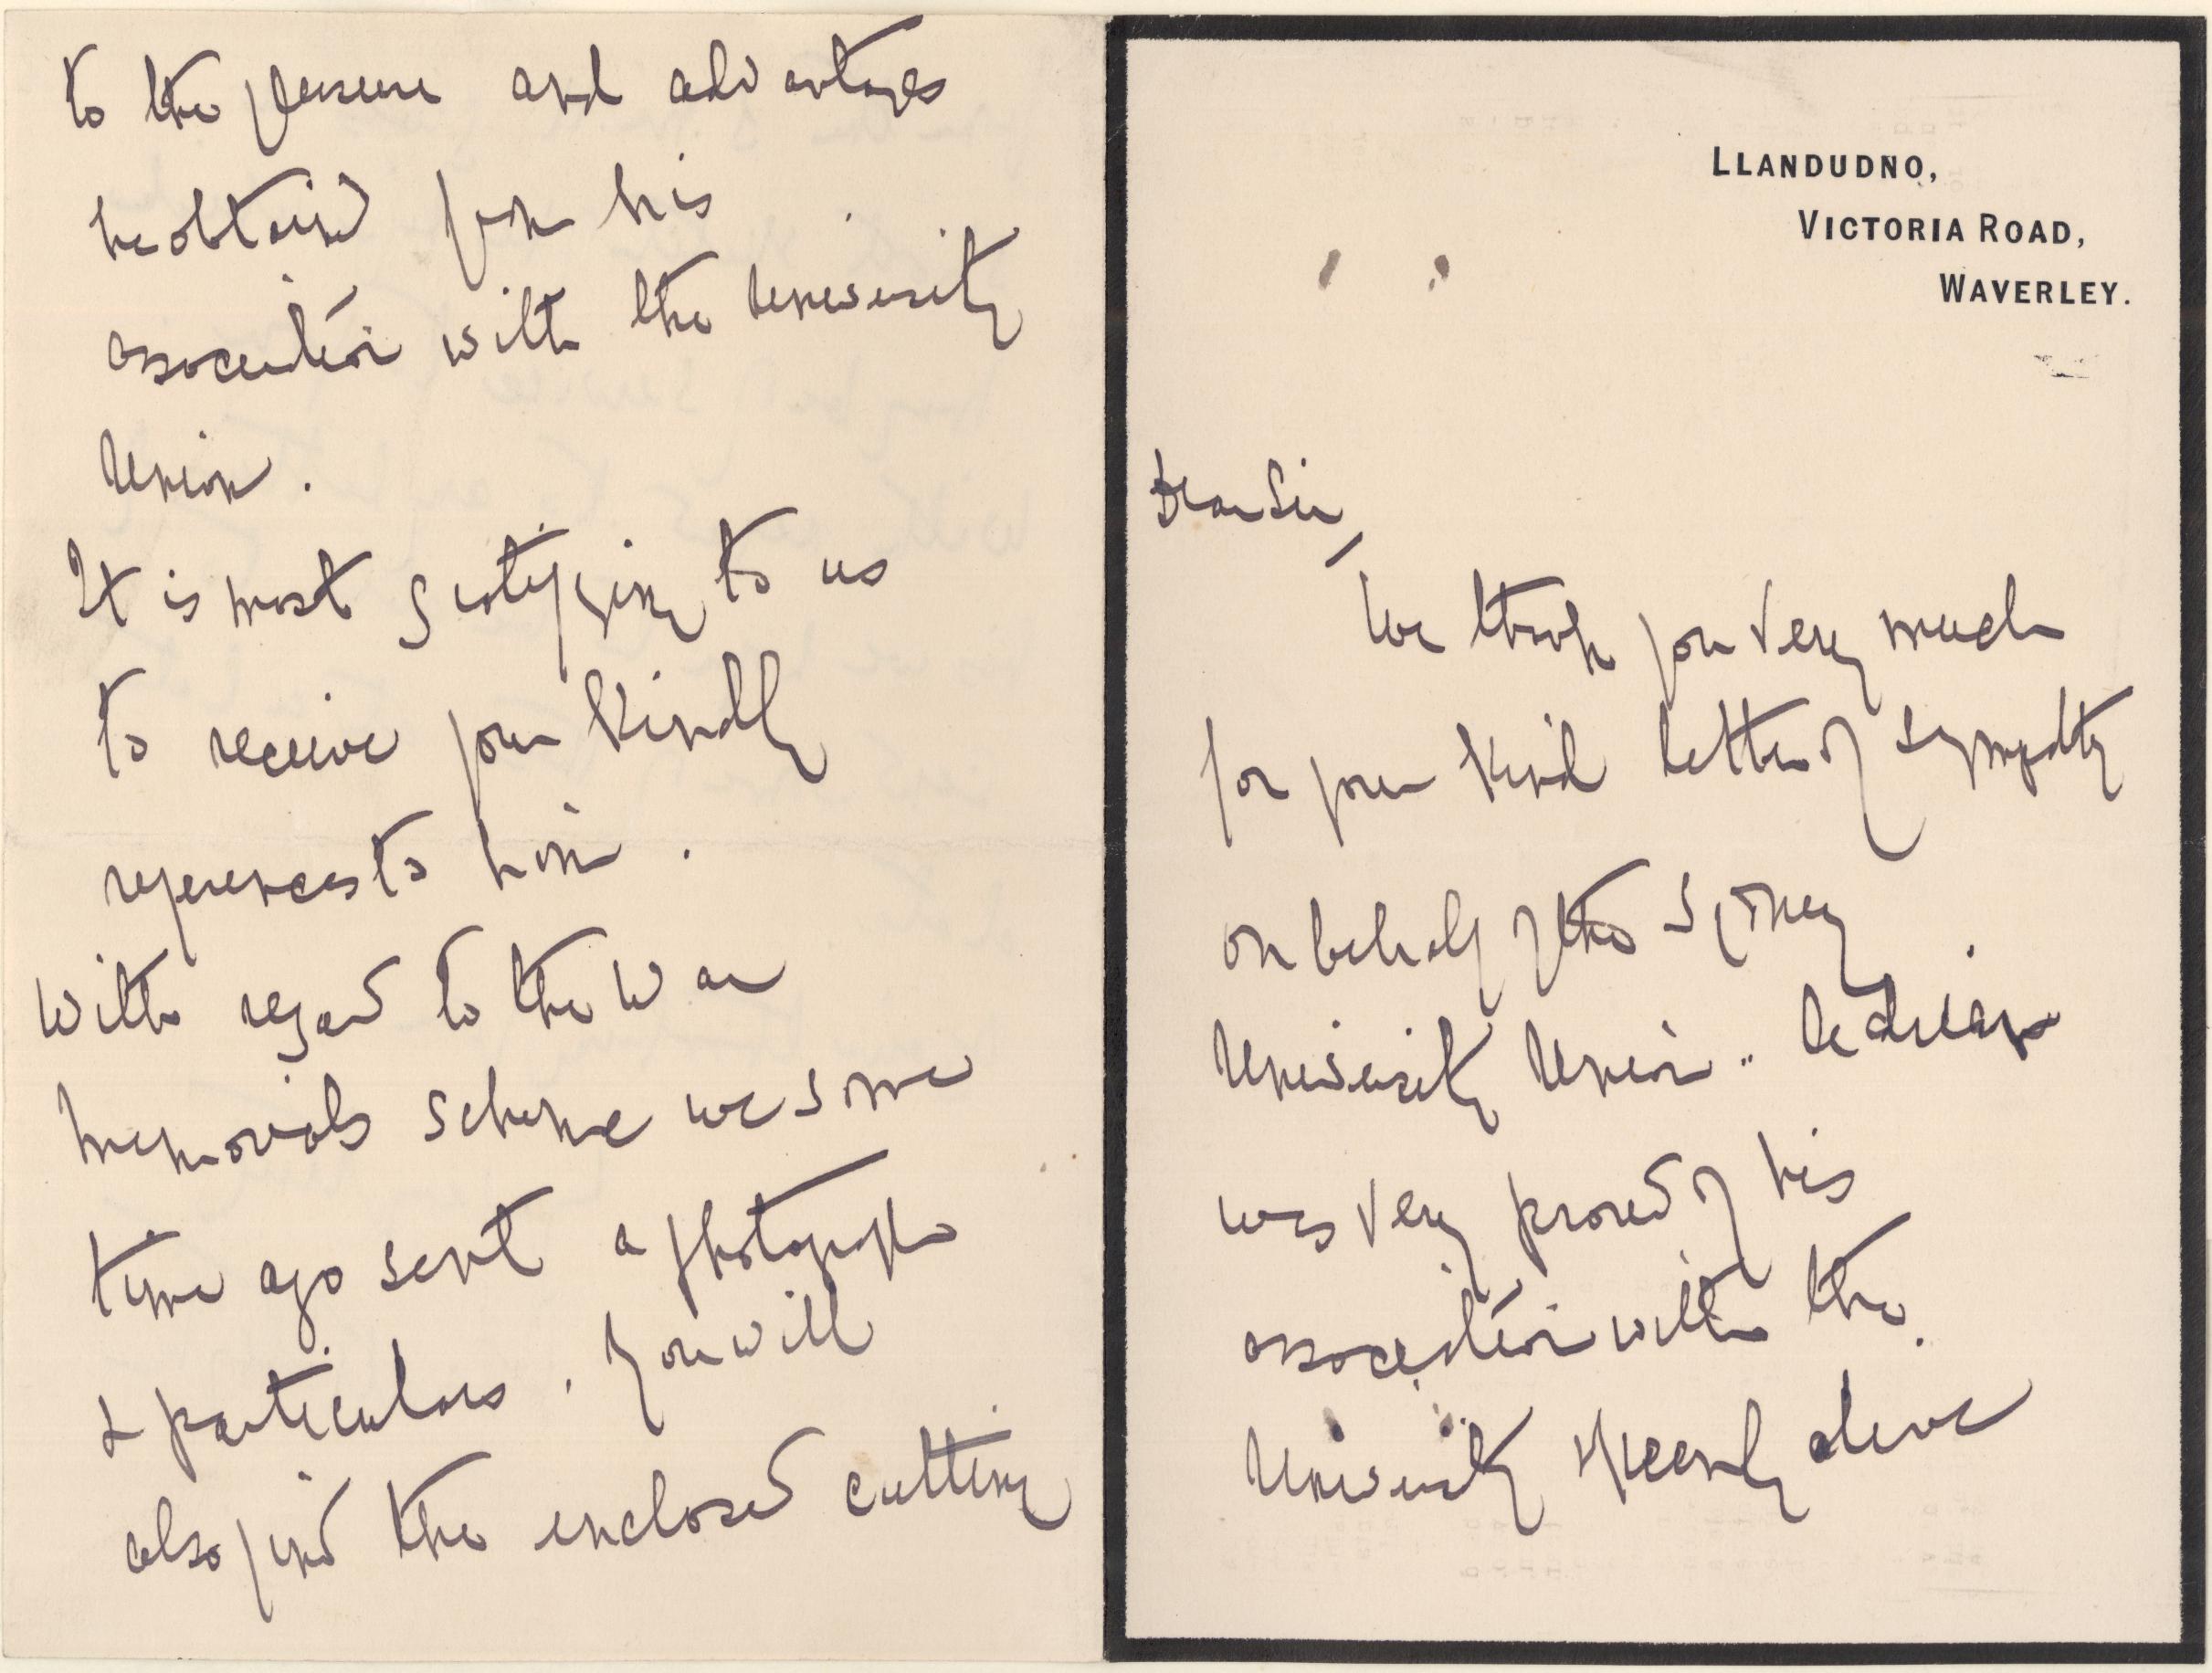 LLANDUDNO,
VICTORIA ROAD,
WAVERLEY.
Dear Sir,
We thank you very much
for your kind letter of sympathy
on behalf of the Sydney
University Union..
was very proud of his
association with the
University & keenly alive
to the pleasure and advantages
he obtained from his
association with the University
Union.
It is most gratifying to us
to receive your kindly
references to him.
With regard to the War
memorials scheme we some
time ago sent a photograph
& particulars. You will
also find the enclosed cutting